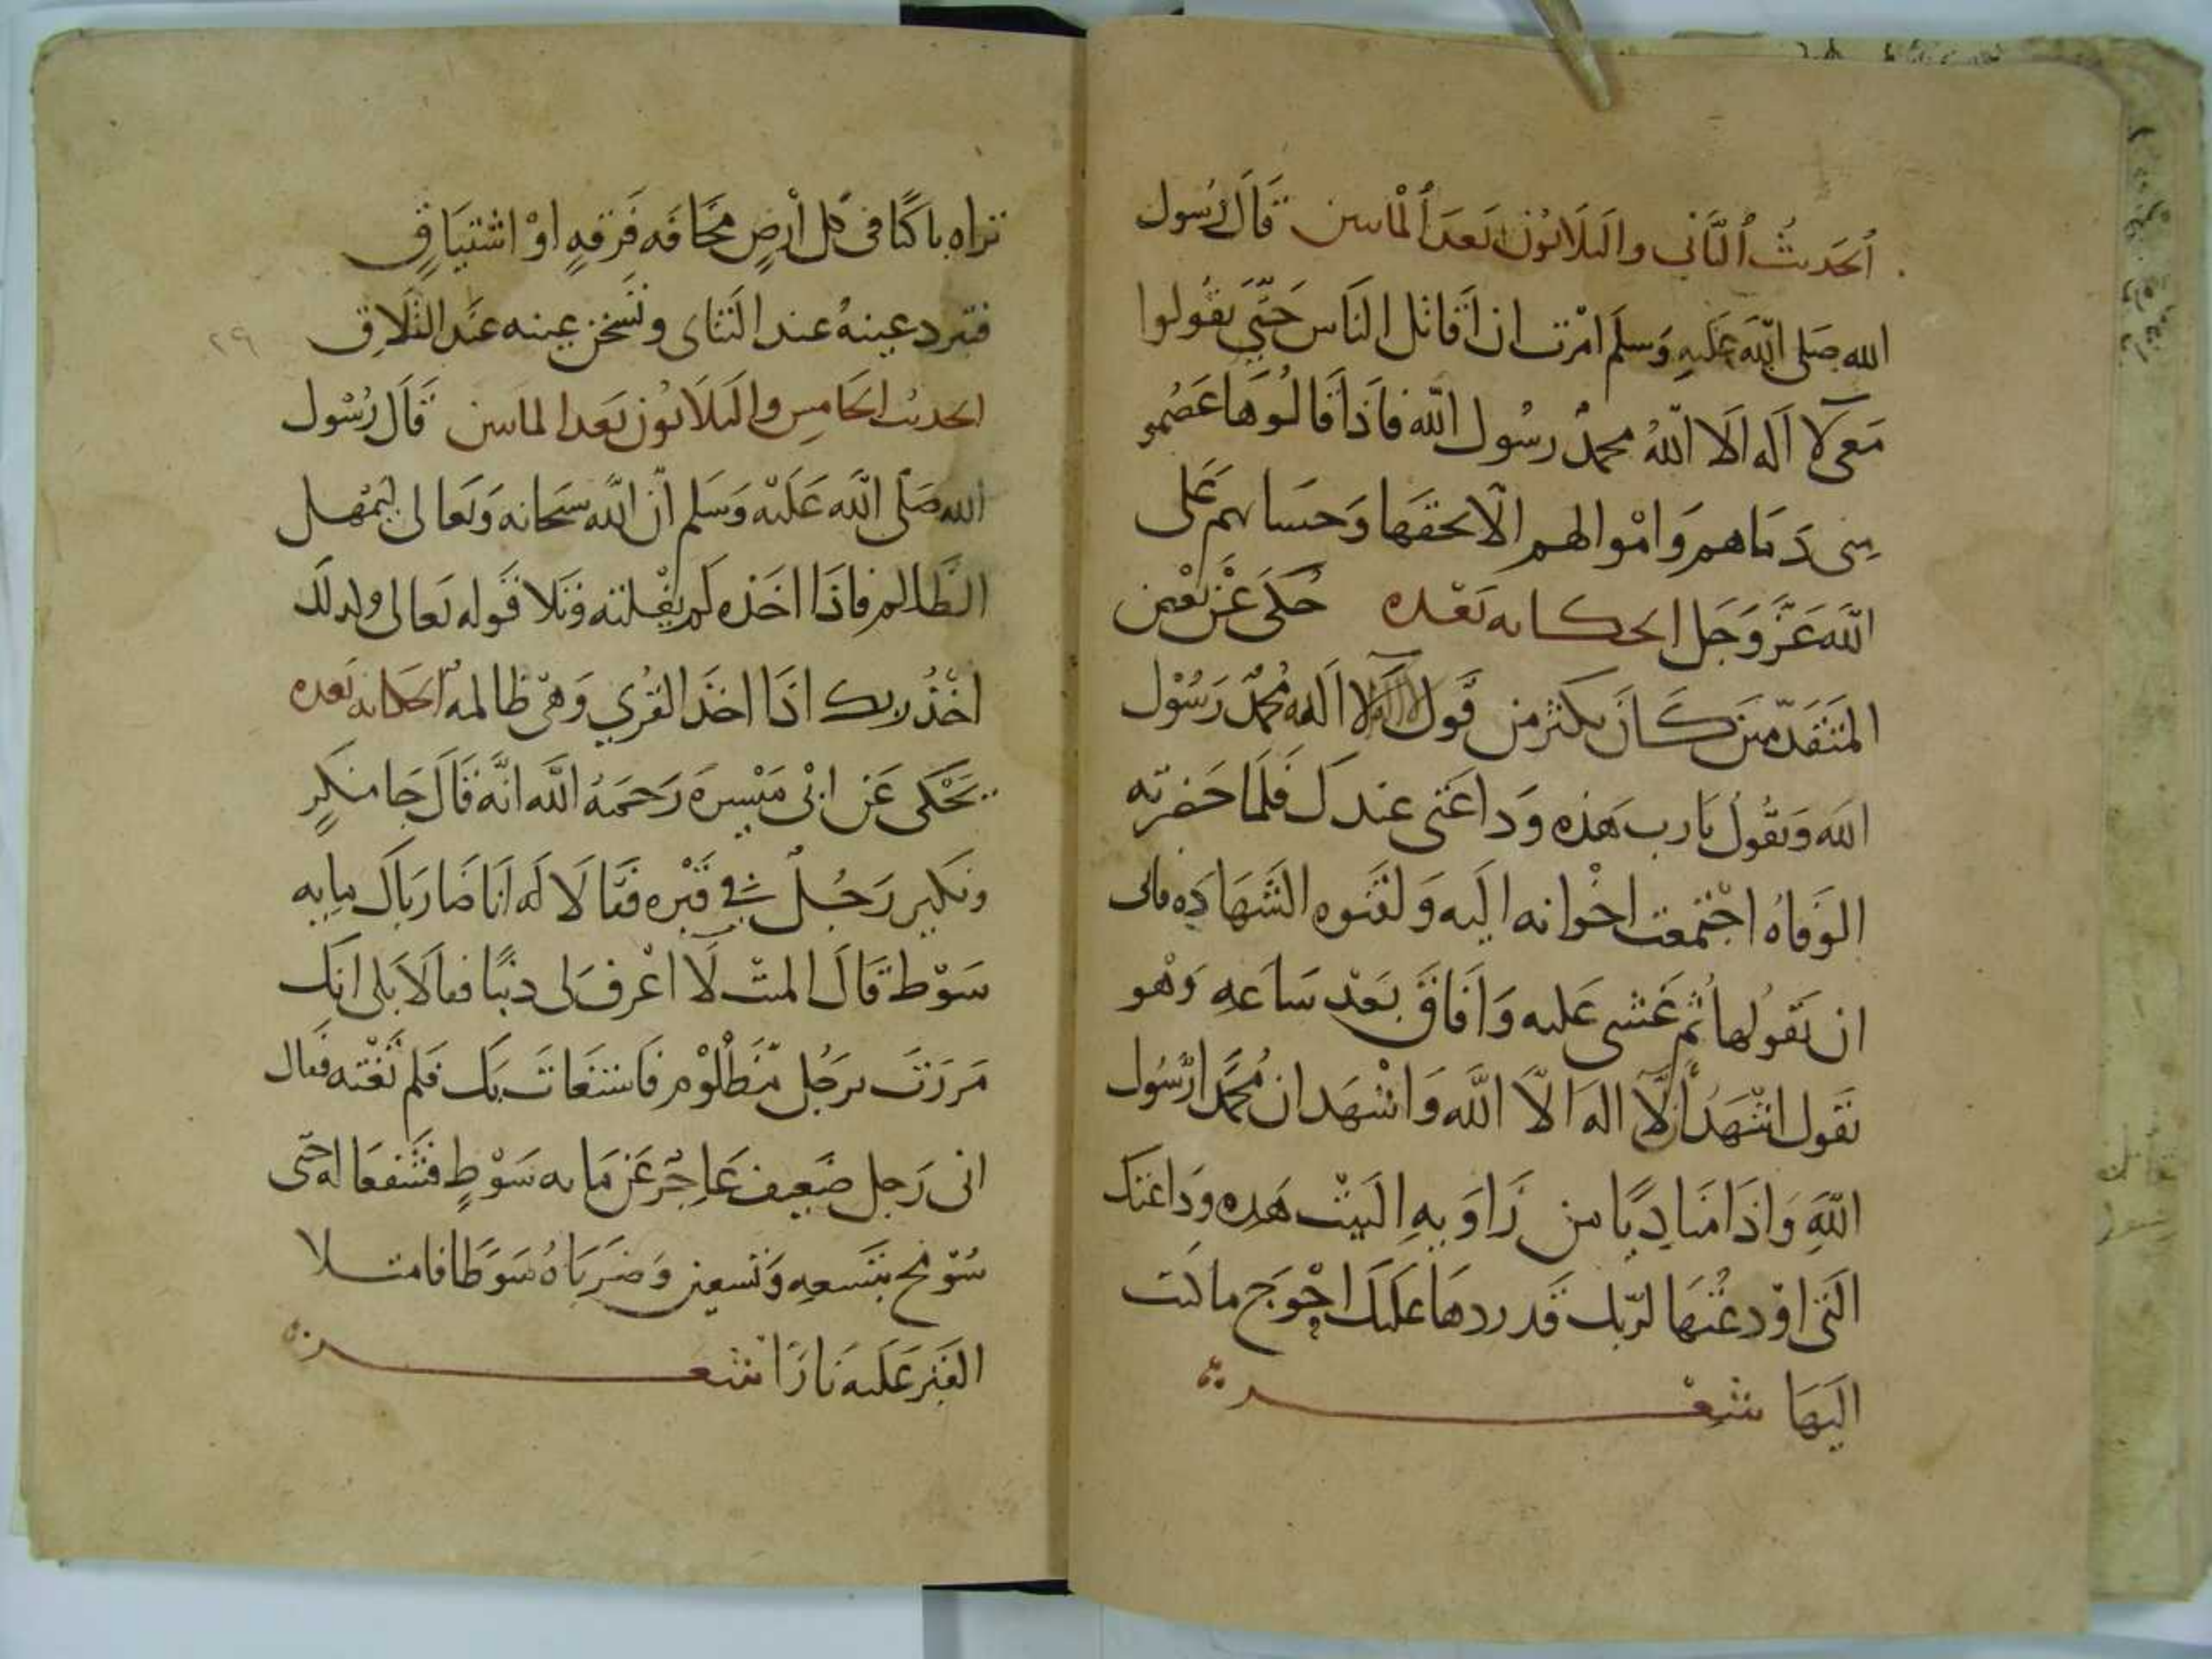 الحديث الثاني والثلاثون بعد المائتين قال رسول
الله صلى الله عليه وسلم امرت ان اقاتل الناس حتى يقولوا
معى لا اله الا الله محمد رسول الله فاذا قالوها عصموا
منى دماهم واموالهم الا بحقها وحسابهم على
الله عز وجل الحكاية بعده حكى عن بعض
المتقدمين كان يكثر من قول لا اله الا الله محمد رسول
الله ويقول يا رب هذه وداعتى عندك فلما حضرته
الوفاه اجتمعت اخوانه اليه ولقنوه الشهاده فابى
ان يقولها ثم غشى عليه وافاق بعد ساعه وهو
يقول اشهد ان لا اله الا الله واشهد ان محمدا رسول
الله واذا مناديا من زاويه البيت هذه وداعتك
التى اودعتها لربك قد ردها عليك احوج ما كنت
اليها شعر
تراه باكيا فى كل ارض مخافه فرقه او اشتياق
فتبرد عينه عند التناى وتسخن عينه عند التلاق
الحديث الخامس والثلاثون بعد المائتين قال رسول
الله صلى الله عليه وسلم ان الله سبحانه وتعالى ليمهل
الظالم فاذا اخذه لم يفلته وتلا قوله تعالى وكذلك
اخذ ربك اذا اخذ القرى وهى ظالمه الحكايه بعده
يحكى عن ابى ميسره رحمه الله انه قال جا منكر
ونكير رجل في قبره فقالا له انا ضارباك مايه
سوط قال الميت لا اعرف لى ذنبا فقالا بلى انك
مررت برجل مظلوم فاستغاث بك فلم تغثه فقال
انى رجل ضعيف عاجز عن مايه سوط فشفعا له حتى
سومح بتسعه وتسعين وضرباه سوطا فامتلا
القبر عليه نارا شعر
٢٩